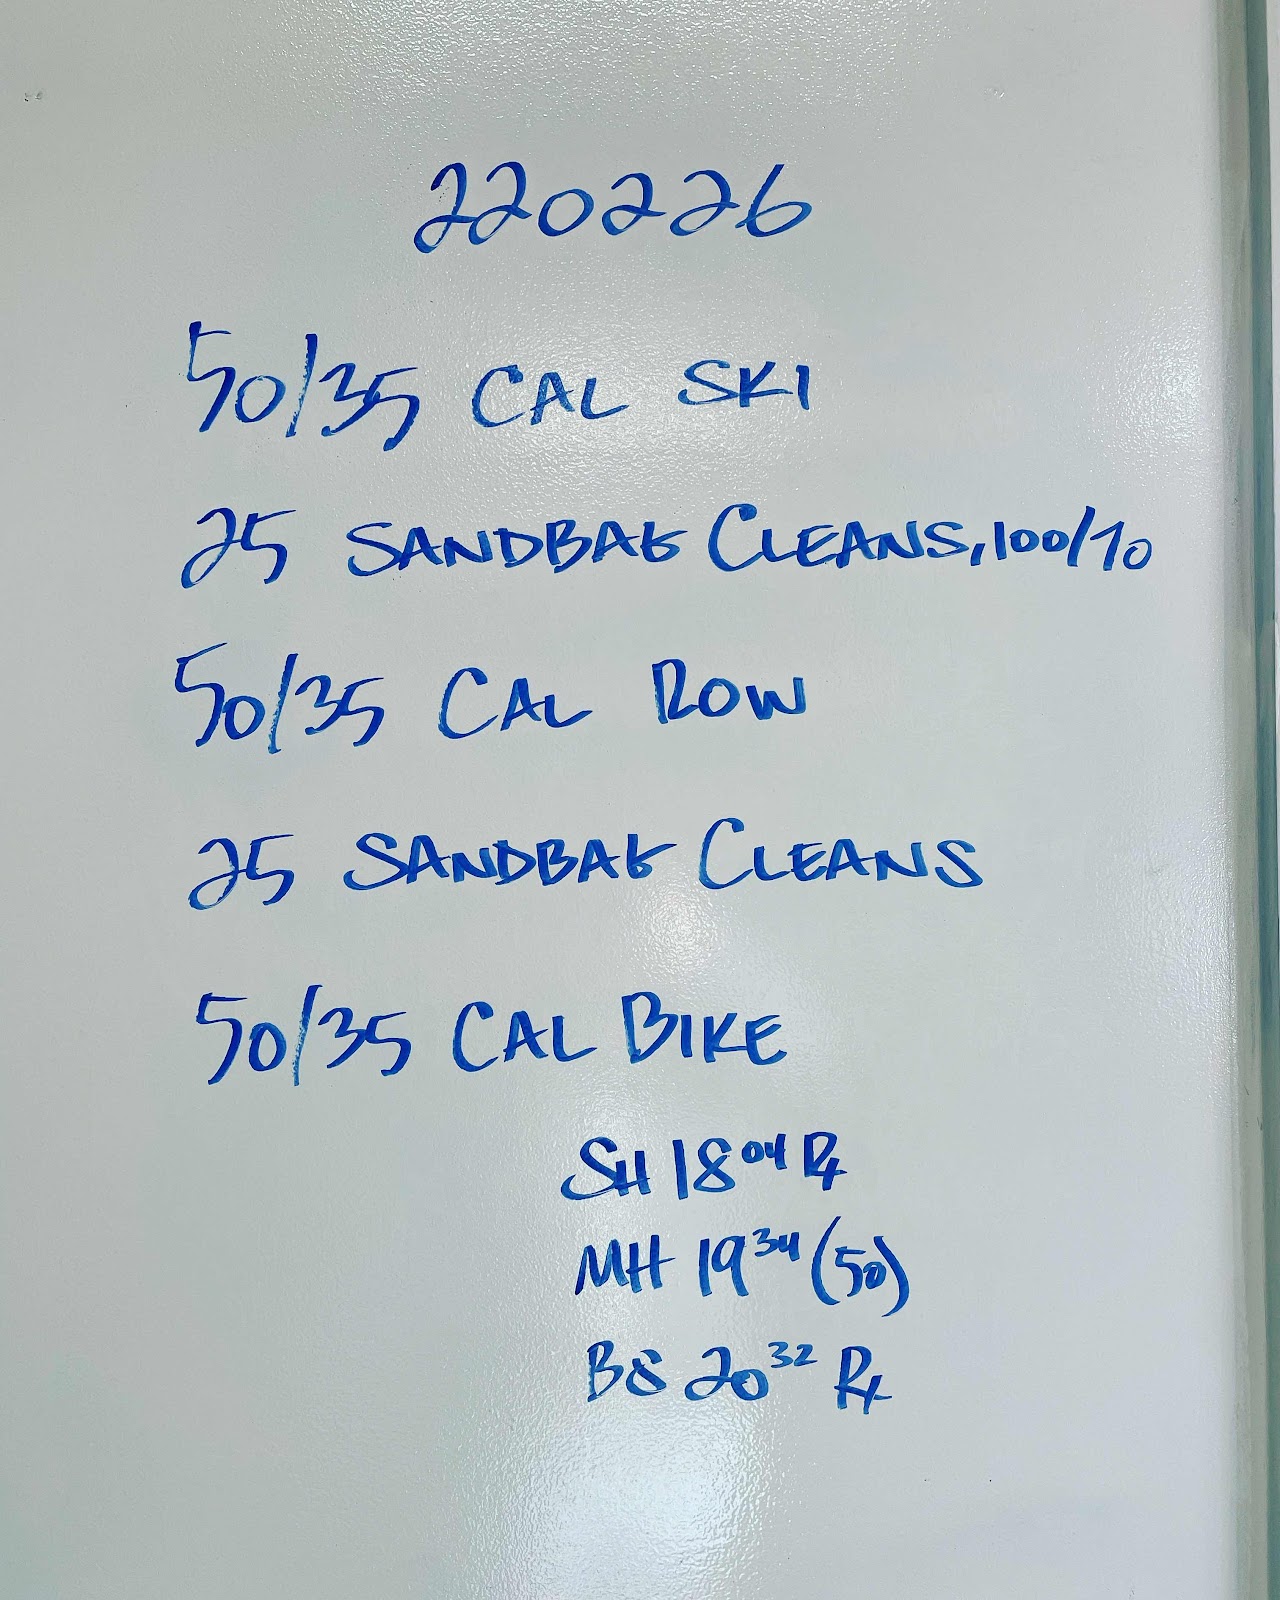 220226
50/35 CAL SKI
25 SANDBAG CLEANS, 100/70
50/35 CAL ROW
25 SANDBAG CLEANS
50/35 CAL BIKE
SH 18 04 Rx
MH 19 34 (50)
BS 20 32 Rx